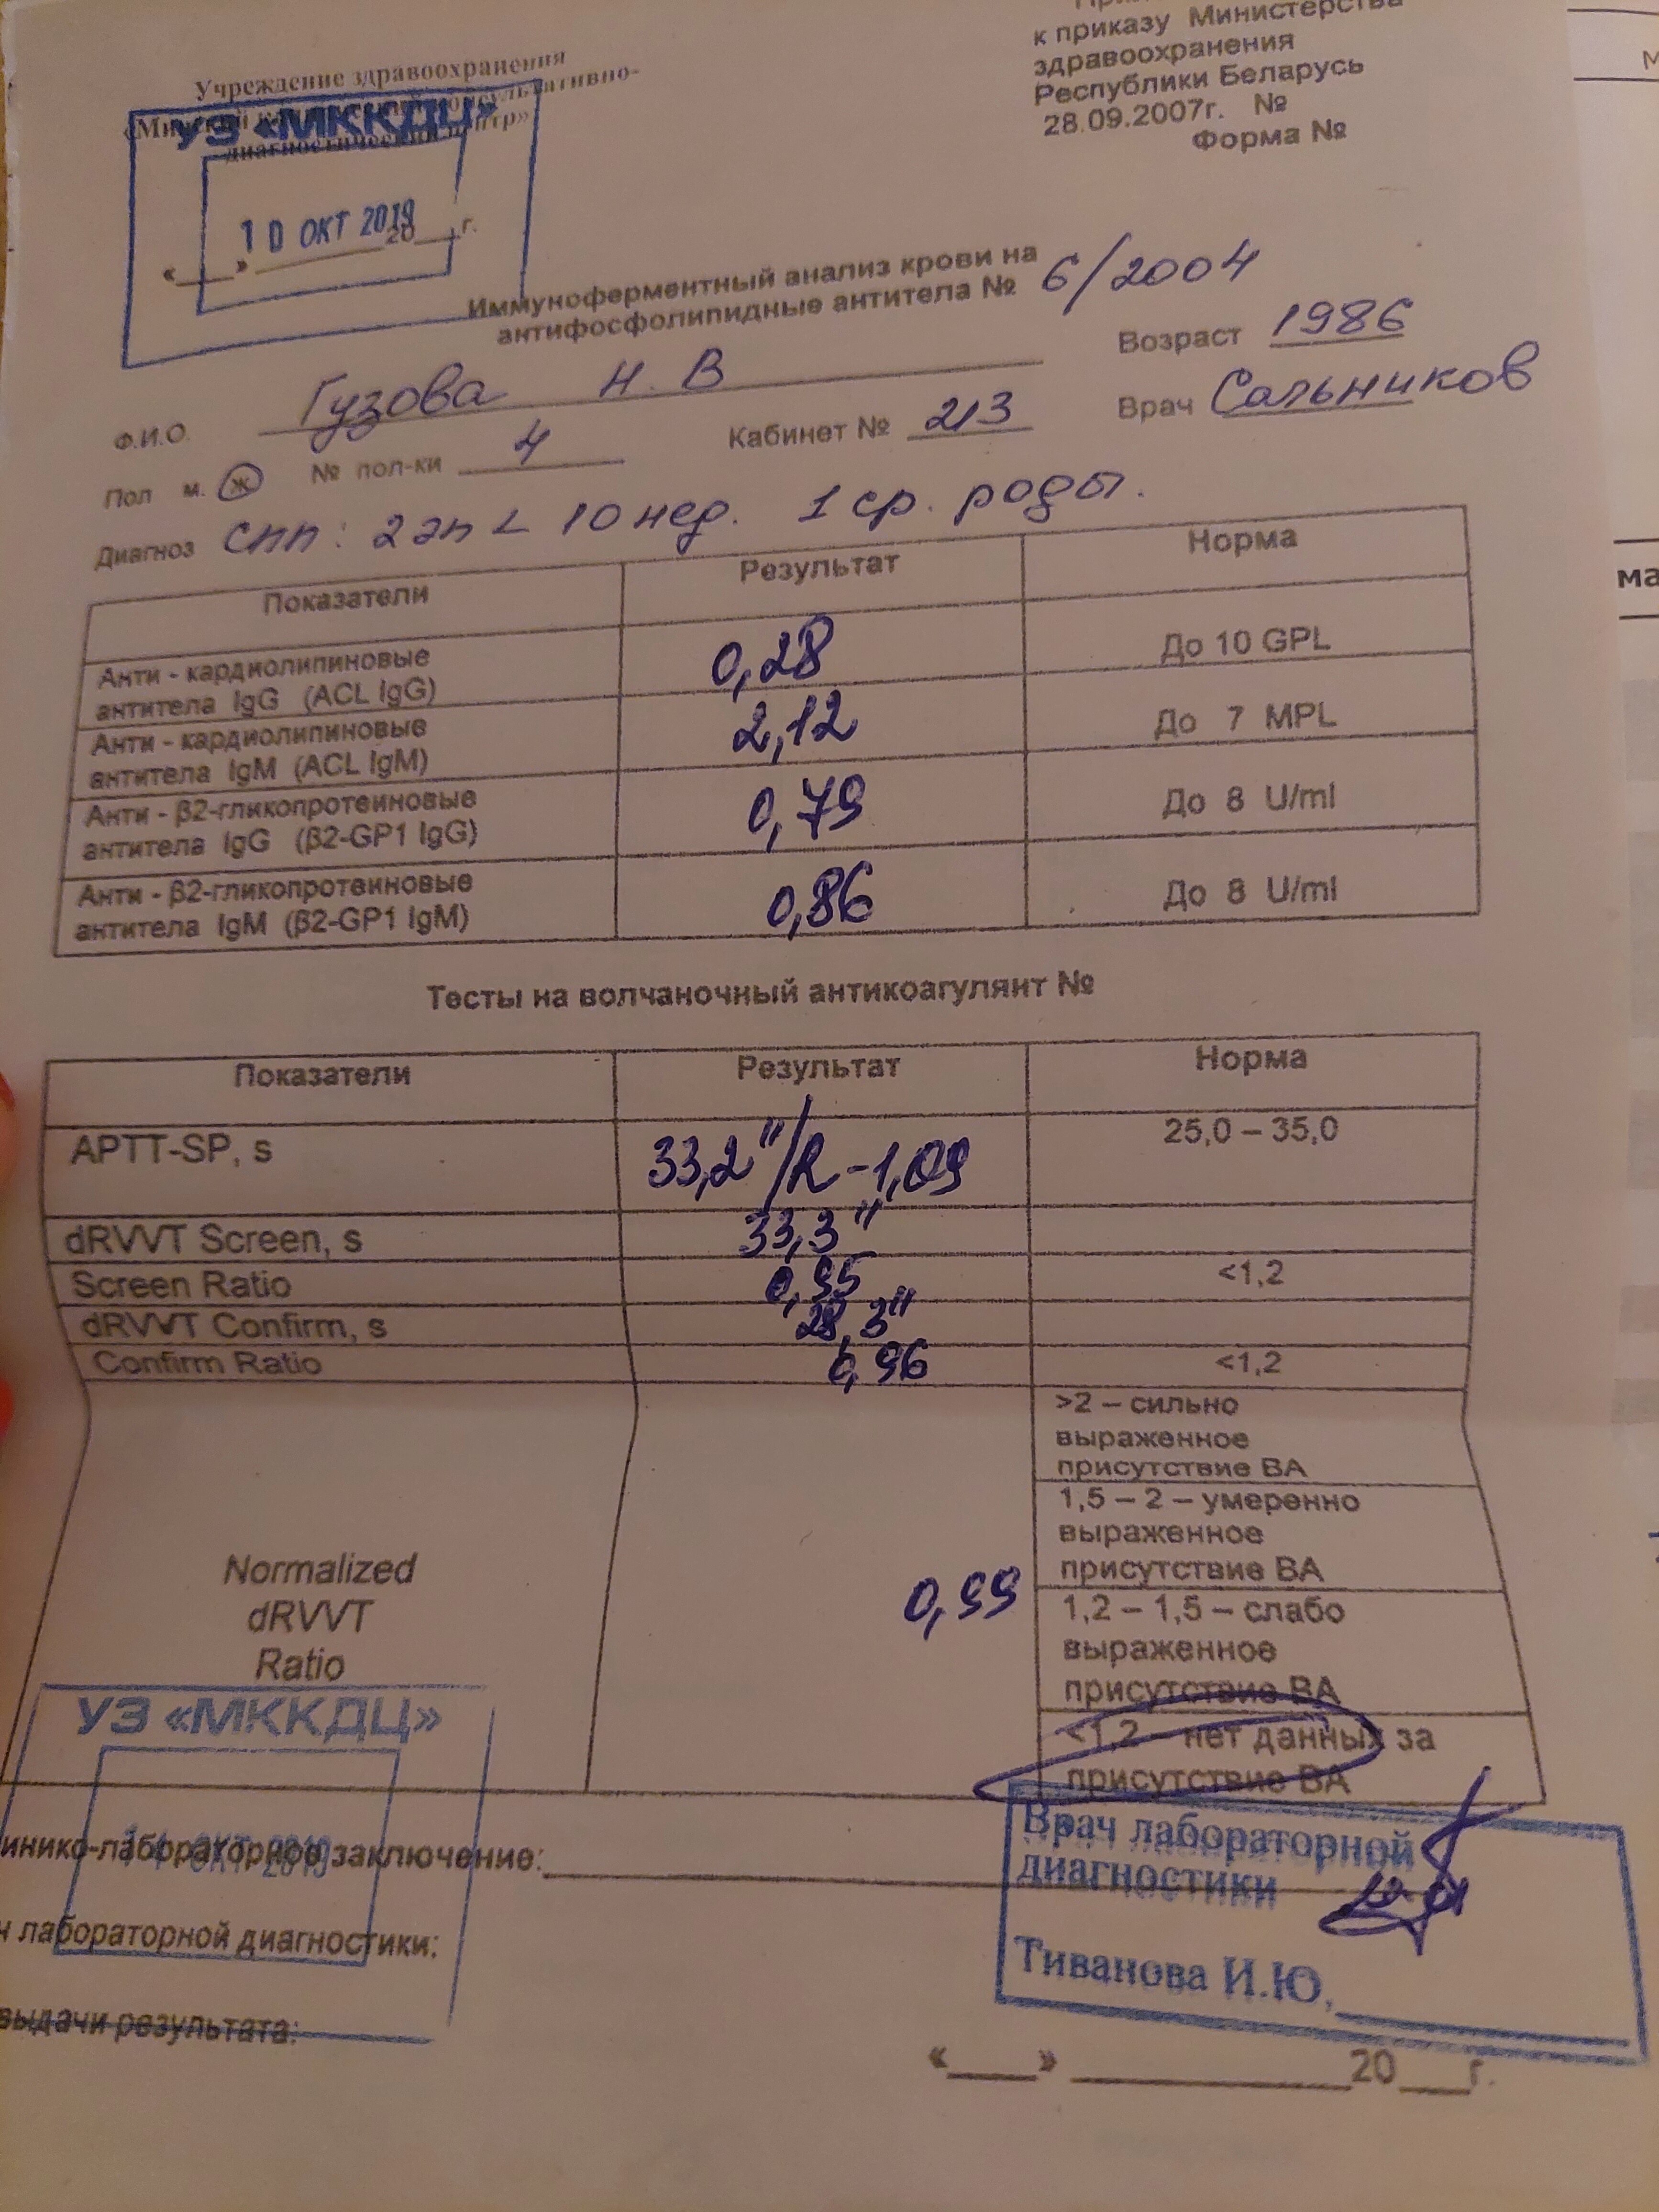 к приказу Министерства
здравоохранения
Республики Беларусь
28.09.2007г. №
Форма №
Учреждение здравоохранения
диагностический центр»
УЗ «МККДЦ»
10 ОКТ 2019
«___» ________20___г.
Иммуноферментный анализ крови на
антифосфолипидные антитела № 6/2004
Ф.И.О. Гузова Н. В Возраст 1986
Пол м. ж № пол-ки 4 Кабинет № 213 Врач Сальников
Диагноз СПП: 2 ЗП < 10 нед. 1 ср. роды.
Показатели Результат Норма
Анти - кардиолипиновые
антитела IgG (ACL IgG) 0,28 До 10 GPL
Анти - кардиолипиновые
антитела IgM (ACL IgM) 2,12 До 7 MPL
Анти - β2-гликопротеиновые
антитела IgG (β2-GP1 IgG) 0,79 До 8 U/ml
Анти - β2-гликопротеиновые
антитела IgM (β2-GP1 IgM) 0,86 До 8 U/ml
Тесты на волчаночный антикоагулянт №
Показатели Результат Норма
APTT-SP, s 33,2"/R-1,09 25,0 – 35,0
dRVVT Screen, s 33,3"
Screen Ratio 0,95 <1,2
dRVVT Confirm, s 28,3"
Confirm Ratio 0,96 <1,2
Normalized
dRVVT
Ratio
0,99
>2 – сильно
выраженное
присутствие ВА
1,5 – 2 – умеренно
выраженное
присутствие ВА
1,2 – 1,5 – слабо
выраженное
присутствие ВА
<1,2 – нет данных за
присутствие ВА
УЗ «МККДЦ»
ОКТ 2019
инико-лабораторное заключение:
ч лабораторной диагностики:
выдачи результата:
Врач лабораторной
диагностики
Тиванова И.Ю.
«___» ____________20___г.